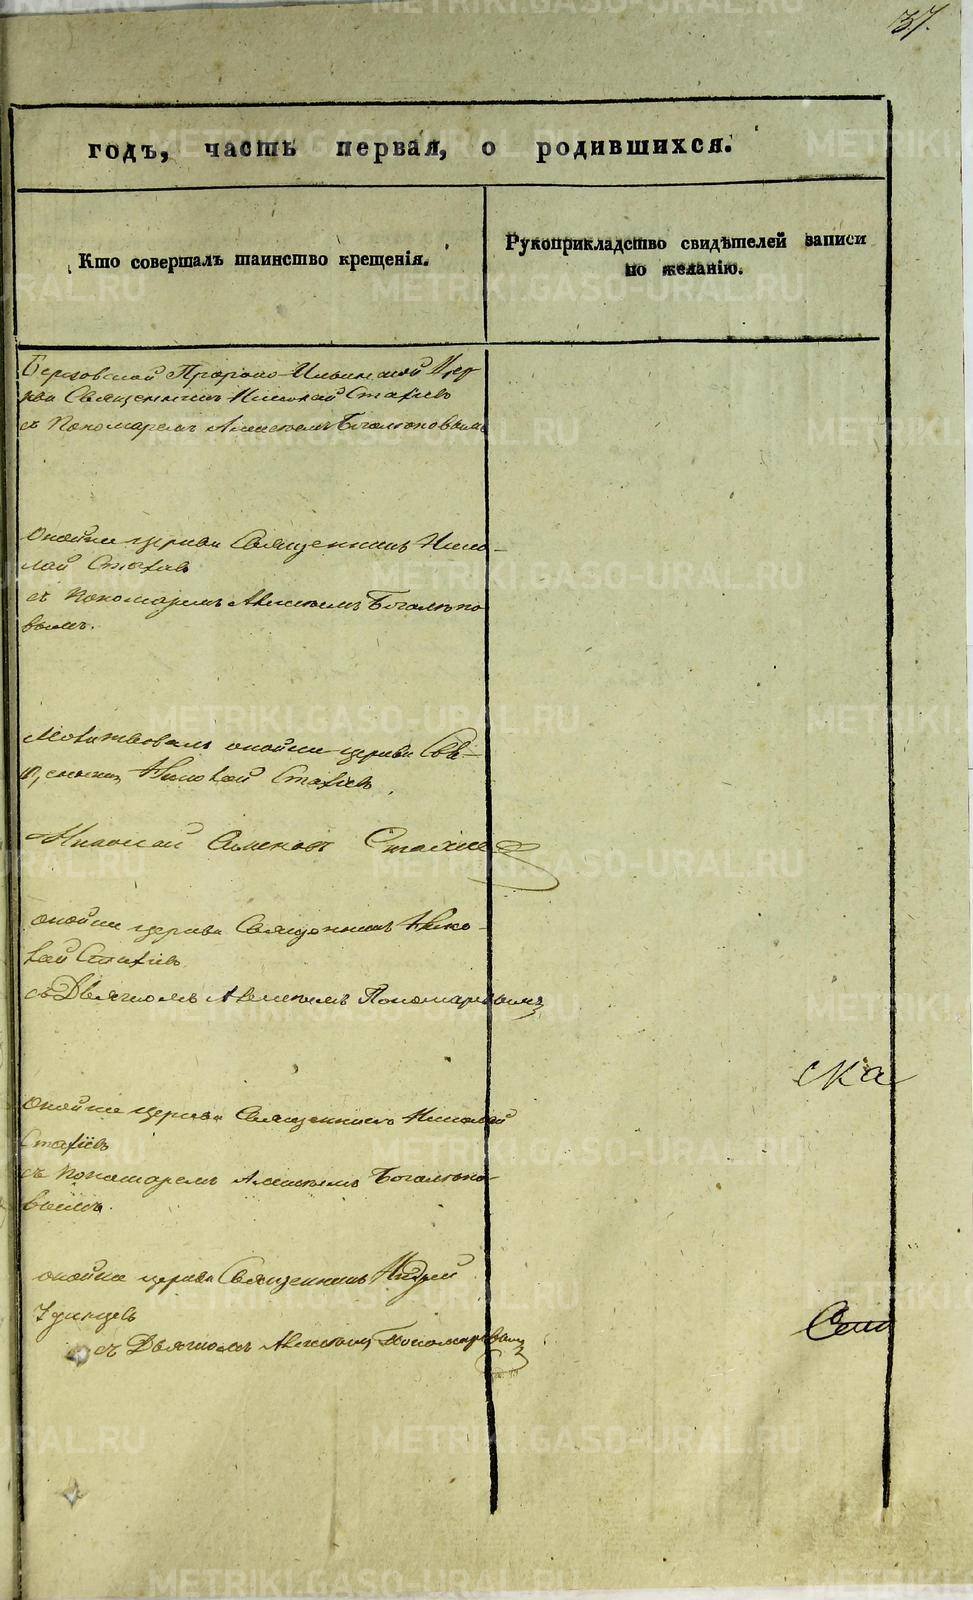 37.
годъ, часть первая, о родившихся.
Кто совершалъ таинство крещенія.
Рукоприкладство свидѣтелей записи
по желанію.
Березовской Пророко-Ильинской Цер
кви Священникъ Николай Стахіев
съ Пономаремъ Алексѣемъ Боголюбовымъ
оной же церкви Священникъ Нико-
лай Стахіев
съ Пономаремъ Алексѣемъ
вымъ.
Молитвовалъ оной же церкви Свя-
щенник Николай Стахіев
Николай Стахіе
оной же церкви Священникъ Нико-
лай Стахіев
съ Дьячкомъ Алексѣемъ Пономаревымъ
оной же церкви Священникъ Николай
Стахіев
съ Пономаремъ Алексѣемъ
вымъ.
оной же церкви Священникъ Андрей
Удинцев
съ Дьячкомъ Алексѣемъ Пономаревым
ска
METRIKI.GASO-URAL.RU